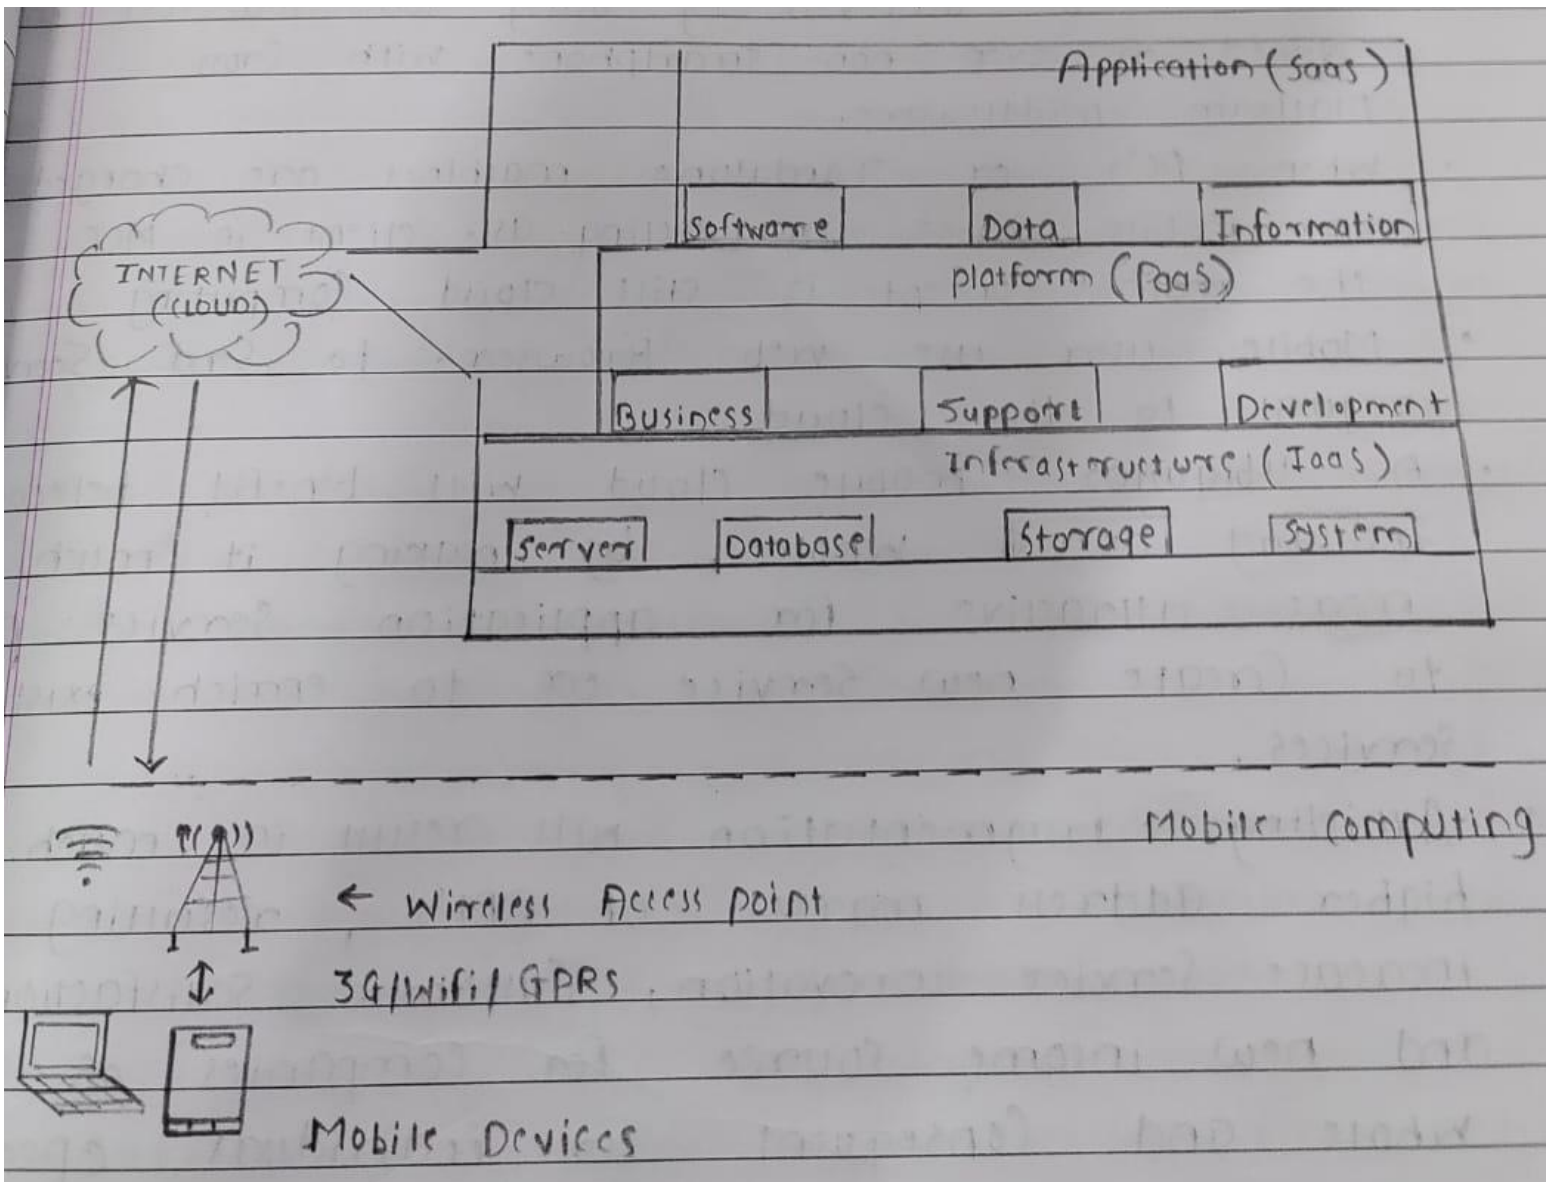 Application (Saas)
Software Data Information
INTERNET
(CLOUD)
platform (Paas)
Business Support Development
Infrastructure (Iaas)
Server Database Storage System
Mobile Computing
← Wireless Access point
3G/Wifi/GPRS
Mobile Devices